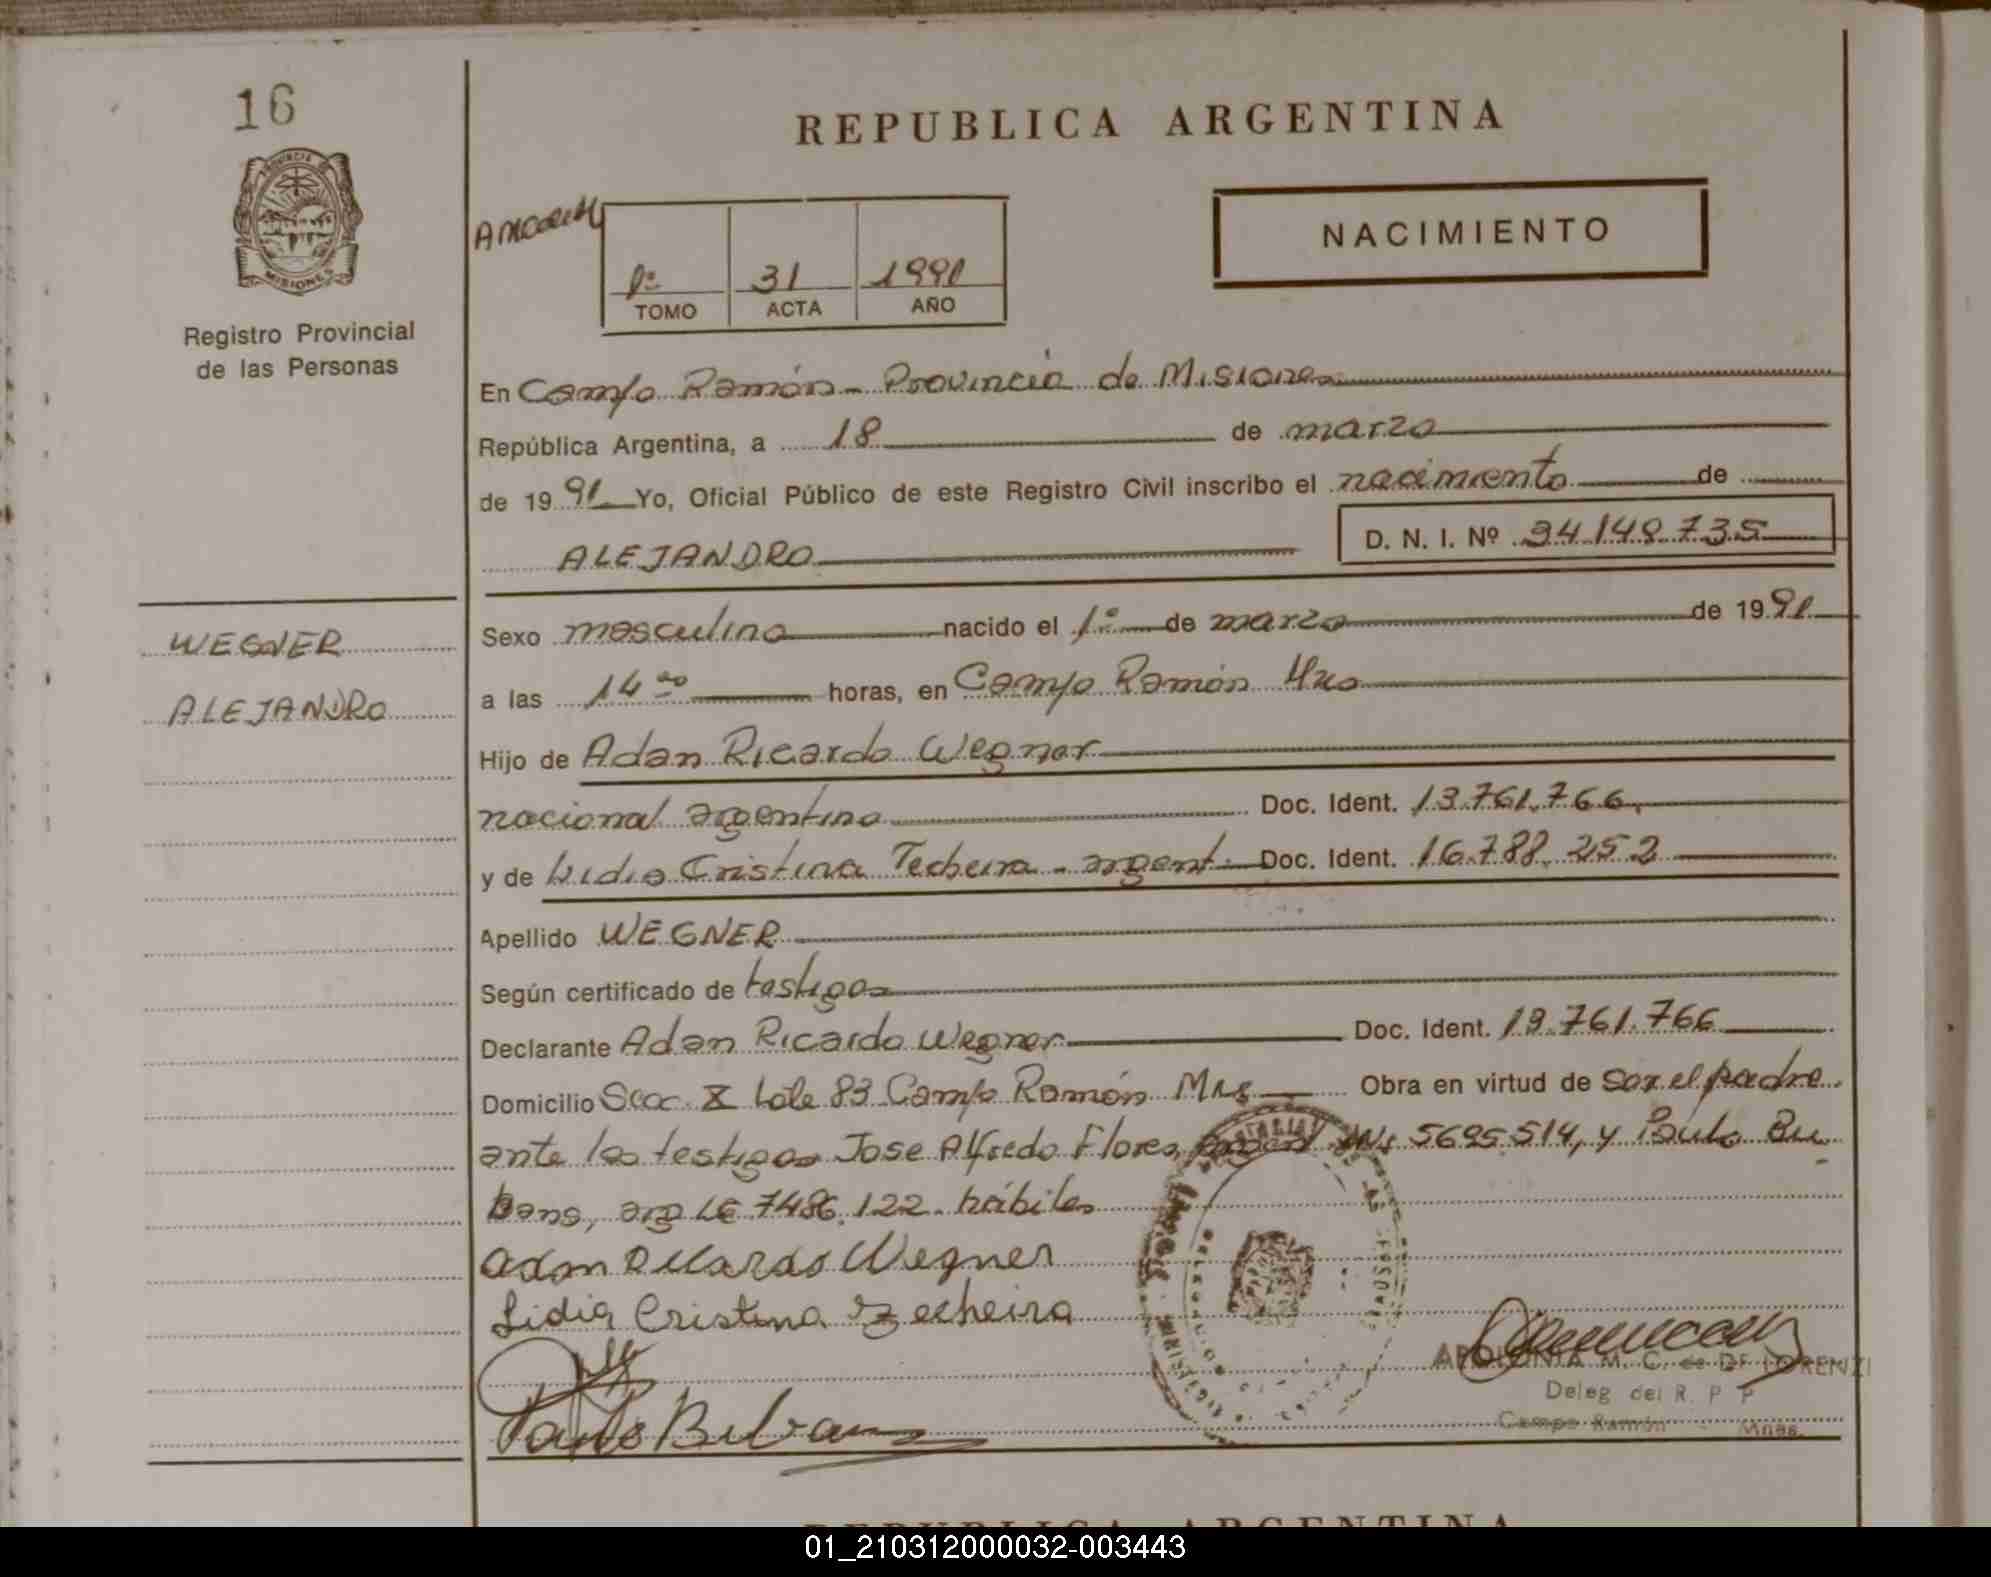 16
REPUBLICA ARGENTINA
PROVINCIA
MISIONES
Registro Provincial
de las Personas
NACIMIENTO
1º 31 1991
TOMO ACTA AÑO
En Campo Ramón - Provincia de Misiones
República Argentina, a 18 de marzo
de 19 91 Yo, Oficial Público de este Registro Civil inscribo el nacimiento de
ALEJANDRO D. N. I. Nº 34.148.735
WEGNER
ALEJANDRO
Sexo masculino nacido el 1º de marzo de 19 91
a las 14 00 horas, en Campo Ramón Mnes
Hijo de Adan Ricardo Wegner
nacional argentino Doc. Ident. 13.761.766
y de Lidia Cristina Techeira - argent. Doc. Ident. 16.788.252
Apellido WEGNER
Según certificado de testigos
Declarante Adan Ricardo Wegner Doc. Ident. 13.761.766
Domicilio Secc. X Lote 83 Campo Ramón Mns Obra en virtud de ser el padre
ante los testigos Jose Alfredo Flores, 5695.514, y Paulo Bu
bans, arg LE 7486.122. hábiles
Adan Ricardo Wegner
Lidia Cristina Techeira
APOLONIA M. C. de DE LORENZI
Deleg del R. P. P
Campo Ramón - Mnes.
REPUBLICA ARGENTINA
01_210312000032-003443